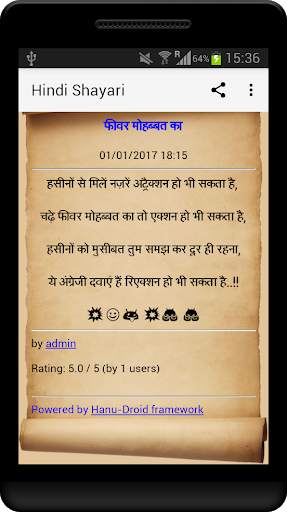 64% 15:36
Hindi Shayari
फीवर मोहब्बत का
01/01/2017 18:15
हसीनों से मिलें नज़रें अट्रैक्शन हो भी सकता है,
चढ़े फीवर मोहब्बत का तो एक्शन हो भी सकता है,
हसीनों को मुसीबत तुम समझ कर दूर ही रहना,
ये अंग्रेजी दवाएं हैं रिएक्शन हो भी सकता है..!!
by admin
Rating: 5.0 / 5 (by 1 users)
Powered by Hanu-Droid framework